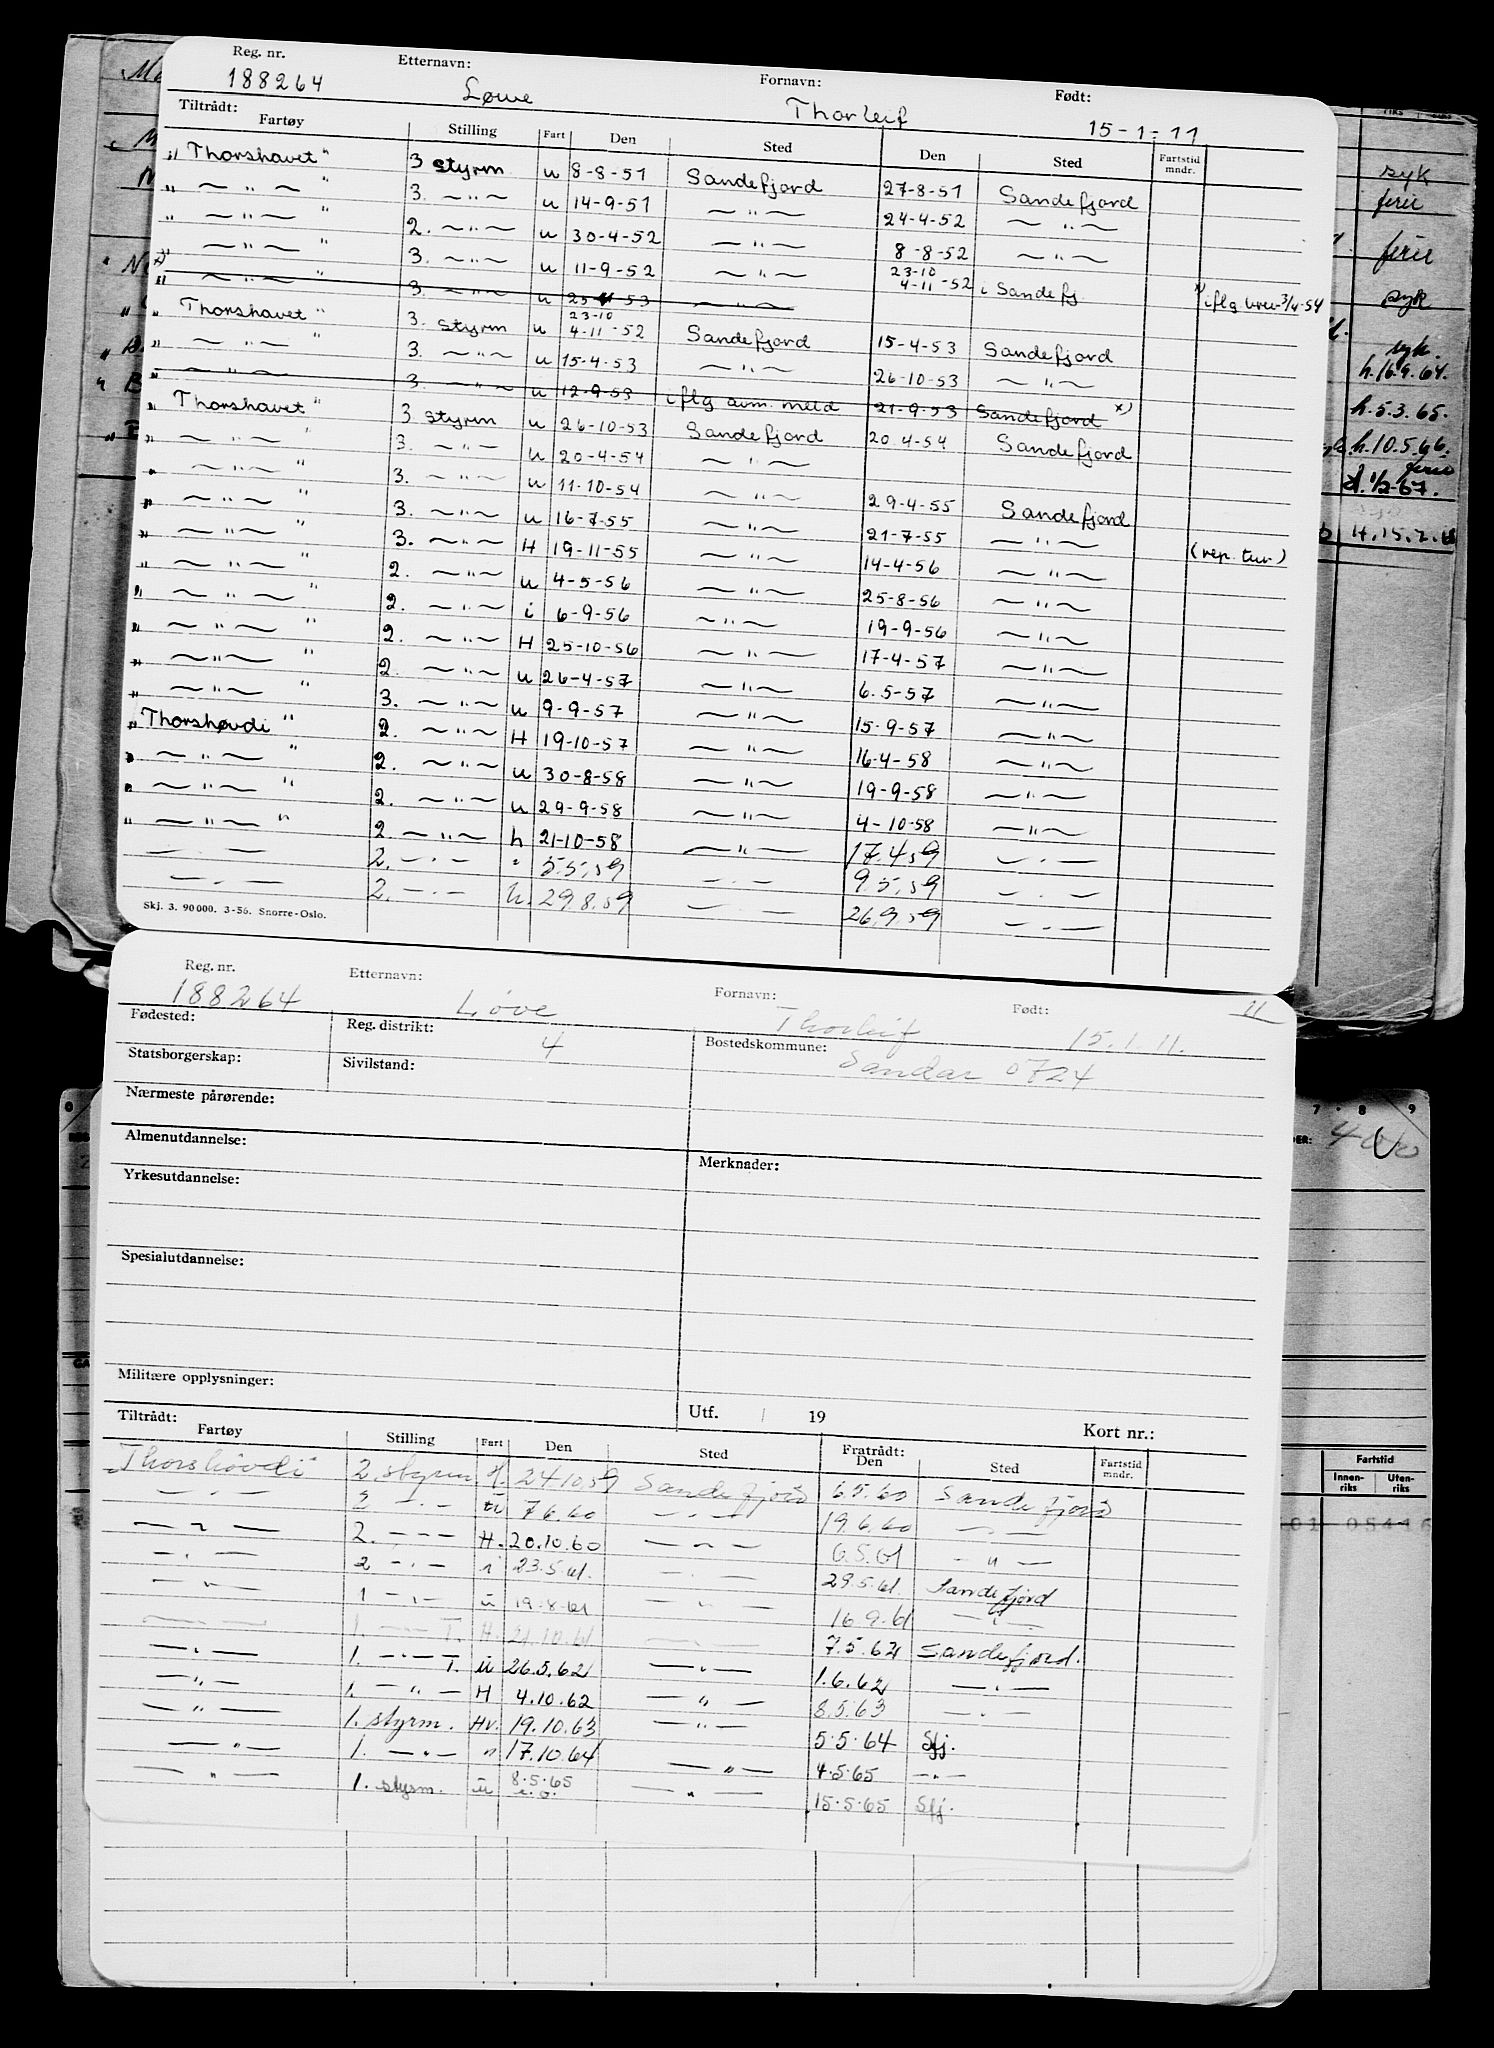 Reg. nr. Etternavn: Fornavn: Født:
188264 Løwe Thorleif 15-1-11
Tiltrådt:
Fartøy Stilling Fart Den Sted Den Sted Fartstid mndr.
„Thorshavet" 3 styrm u 8-8-51 Sandefjord 27-8-51 Sandefjord
„ — " — " 3. — " — u 14-9-51 — " — 24-4-52 — " —
„ — " — " 2. — " — u 30-4-52 — " — 8-8-52 — " —
„ — " — " 3. — " — u 11-9-52 — " — 23-10 4-11-52 i Sandefj
x) „ — " — " 3. — " — u 53 — " — x) iflg brev 3/4-54
„Thorshavet" 3. styrm u 23-10 4-11-52 Sandefjord 15-4-53 Sandefjord
„ — " — " 3. — " — u 15-4-53 — " — 26-10-53 — " —
„ — " — 3. — " — u 12-9-53 iflg avm. meld 21-9-53 Sandefjord x)
„Thorshavet" 3 styrm u 26-10-53 Sandefjord 20-4-54 Sandefjord
„ — " — " 3. — " — u 20-4-54 — " —
„ — " — " 3. — " — u 11-10-54 — " — 29-4-55 Sandefjord
„ — " — " 3. — " — u 16-7-55 — " — 21-7-55 — " — (rep. tur.)
„ — " — " 3. — " — H 19-11-55 — " — 14-4-56 — " —
„ — " — " 2. — " — u 4-5-56 — " — 25-8-56 — " —
„ — " — " 2. — " — i 6-9-56 — " — 19-9-56 — " —
„ — " — " 2. — " — H 25-10-56 — " — 17-4-57 — " —
„ — " — " 2. — " — u 26-4-57 — " — 6.5-57 — " —
„ — " — " 3. — " — u 9-9-57 — " — 15-9-57 — " —
„Thorshøvdi" 2. — " — H 19-10-57 — " — 16-4-58 — " —
„ — " — " 2. — " — u 30-8-58 — " — 19-9-58 — " —
„ — " — " 2. — " — u 29-9-58 — " — 4-10-58 — " —
„ — " — " 2. — " — h 21-10-58 — " — 17.4.59 — . —
— . — 2. — . — " 5.5.59 — . — 9.5.59 — . —
— . — 2. — . — U. 29.8.59 — — 26.9.59 — . —
Skj. 3. 90000. 3-56. Snorre-Oslo.
syk
ferie
ferie
syk
syk.
h.16.9.64.
h.5.3.65.
h.10.5.66.
ferie
1/2-67.
Reg. nr. Etternavn: Fornavn: Født: 11
188264 Løve Thorleif 15.1.11.
Fødested: Reg. distrikt: 4 Bostedskommune: Sandar 0724
Statsborgerskap: Sivilstand:
Nærmeste pårørende:
Almenutdannelse: Merknader:
Yrkesutdannelse:
Spesialutdannelse:
Militære opplysninger:
Utf. 19 Kort nr.:
Tiltrådt: Fratrådt:
Fartøy Stilling Fart Den Sted Den Sted Fartstid mndr.
„Thorshøvdi" 2. styrm H. 24.10.59 Sandefjord 6.5.60 Sandefjord
— . — 2 — . — u 7.6.60 — . — 19.6.60 — . —
— " — 2. — — — H. 20.10.60 — " — 6.5.61 — " —
— . — 2 — . — i 23.5.61. — . — 29.5.61. Sandefjord
— " — 1 — . — u 19.8.61 — " — 16.9.61 — " —
— . — 1. — — T. H. 21.10.61 — . — 7.5.62 Sandefjord.
— . — 1. — . — T. u 26.5.62 — " — 1.6.62 — . —
— " — 1. — " — H 4.10.62 — " — 8.5.63 — . —
— " — 1. styrm. Hv. 19.10.63 — " — 5.5.64 Sfj.
— " — 1. — " — " 17.10.64 — " — 4.5.65 — . —
— " — 1. styrm. u 8.5.65 — " — 15.5.65 Sfj.
7 · 8 9
Fartstid
Innenriks Utenriks
01 05446